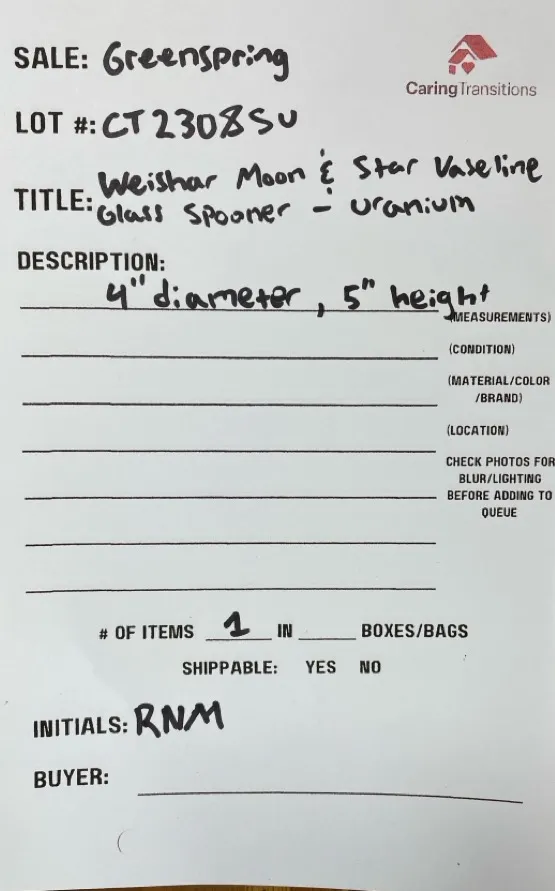 SALE: Greenspring
CaringTransitions
LOT #: CT2308SU
TITLE: Weishar Moon & Star Vaseline
Glass Spooner - Uranium
DESCRIPTION:
4" diameter, 5" height
(MEASUREMENTS)
(CONDITION)
(MATERIAL/COLOR
/BRAND)
(LOCATION)
CHECK PHOTOS FOR
BLUR/LIGHTING
BEFORE ADDING TO
QUEUE
# OF ITEMS 1 IN BOXES/BAGS
SHIPPABLE: YES NO
INITIALS: RNM
BUYER: